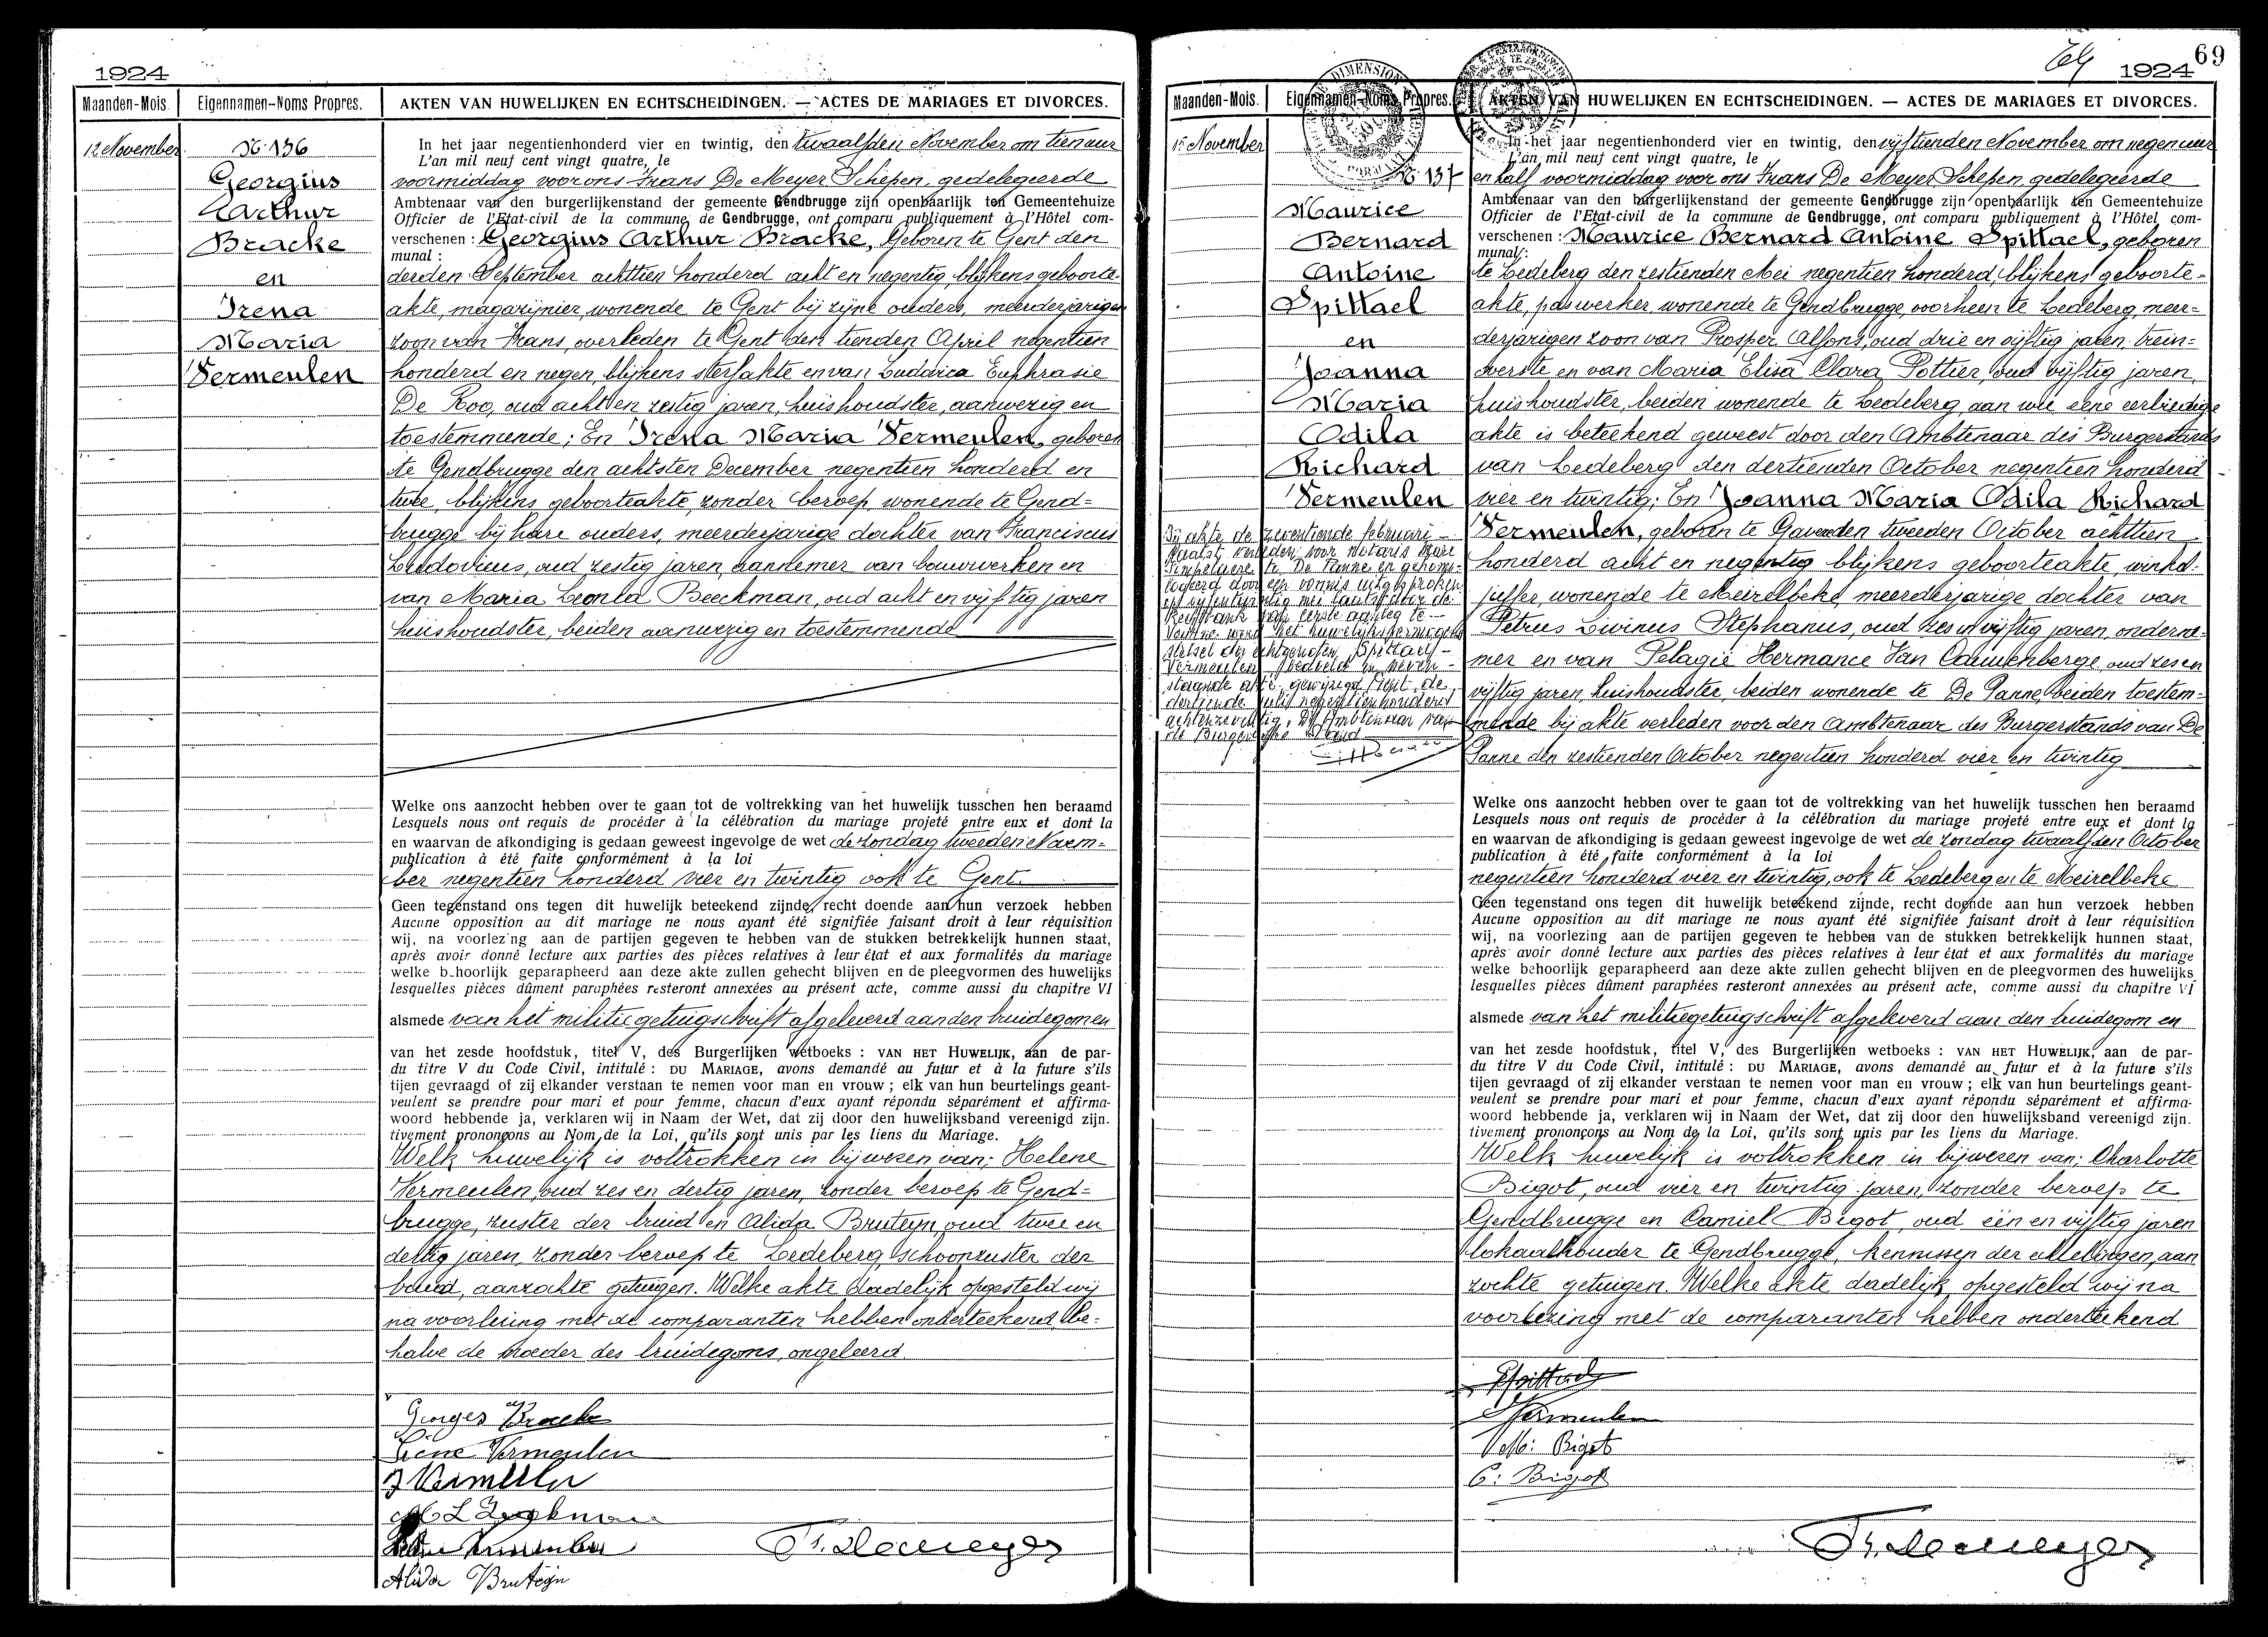 1924
Maanden-Mois.
Eigennamen-Noms Propres.
AKTEN VAN HUWELIJKEN EN ECHTSCHEIDINGEN. — ACTES DE MARIAGES ET DIVORCES.
12 November
N. 136
Georgius
Arthur
Bracke
en
Irena
Maria
Vermeulen
In het jaar negentienhonderd vier en twintig, den twaalfden November om tien uur
L'an mil neuf cent vingt quatre, le
voormiddag voor ons Frans De Meyer Schepen, gedelegeerde
Ambtenaar van den burgerlijkenstand der gemeente Gendbrugge zijn openbaarlijk ten Gemeentehuize
Officier de l'Etat-civil de la commune de Gendbrugge, ont comparu publiquement à l'Hôtel com-
verschenen : Georgius Arthur Bracke, Geboren te Gent den
munal :
derden September achttien honderd acht en negentig, blijkens geboorte-
akte, magazijnier, wonende te Gent bij zijne ouders, meerderjarigen
zoon van Frans, overleden te Gent den tienden April negentien
honderd en negen, blijkens sterfakte en van Ludovica Euphrasie
De Roo, oud acht en zestig jaren, huishoudster, aanwezig en
toestemmende ; En Irena Maria Vermeulen, geboren
te Gendbrugge den achtsten December negentien honderd en
twee, blijkens geboorteakte, zonder beroep, wonende te Gend=
brugge bij hare ouders, meerderjarige dochter van Franciscus
Ludovicus, oud zestig jaren, aannemer van bouwwerken en
van Maria Leonia Beeckman, oud acht en vijftig jaren
huishoudster, beiden aanwezig en toestemmende
Welke ons aanzocht hebben over te gaan tot de voltrekking van het huwelijk tusschen hen beraamd
Lesquels nous ont requis de procéder à la célébration du mariage projeté entre eux et dont la
en waarvan de afkondiging is gedaan geweest ingevolge de wet de zondag tweeden Novem=
publication à été faite conformément à la loi
ber negentien honderd vier en twintig ook te Gent.
Geen tegenstand ons tegen dit huwelijk beteekend zijnde, recht doende aan hun verzoek hebben
Aucune opposition au dit mariage ne nous ayant été signifiée faisant droit à leur réquisition
wij, na voorlezing aan de partijen gegeven te hebben van de stukken betrekkelijk hunnen staat,
après avoir donné lecture aux parties des pièces relatives à leur état et aux formalités du mariage
welke behoorlijk geparapheerd aan deze akte zullen gehecht blijven en de pleegvormen des huwelijks
lesquelles pièces dûment paraphées resteront annexées au présent acte, comme aussi du chapitre VI
alsmede van het militie getuigschrift afgeleverd aan den bruidegom en
van het zesde hoofdstuk, titel V, des Burgerlijken wetboeks : VAN HET HUWELIJK, aan de par-
du titre V du Code Civil, intitulé : DU MARIAGE, avons demandé au futur et à la future s'ils
tijen gevraagd of zij elkander verstaan te nemen voor man en vrouw ; elk van hun beurtelings geant-
veulent se prendre pour mari et pour femme, chacun d'eux ayant répondu séparément et affirma-
woord hebbende ja, verklaren wij in Naam der Wet, dat zij door den huwelijksband vereenigd zijn.
tivement prononçons au Nom de la Loi, qu'ils sont unis par les liens du Mariage.
Welk huwelijk is voltrokken in bijwezen van; Helene
Vermeulen, oud zes en dertig jaren, zonder beroep te Gend=
brugge, zuster der bruid en Alida Bruteyn, oud twee en
dertig jaren, zonder beroep te Ledeberg, schoonzuster der
bruid, aanzochte getuigen. Welke akte dadelijk opgesteld wij
na voorlezing met de comparanten hebben onderteekend, be=
halve de moeder des bruidegoms, ongeleerd.
Georges Bracke
Irene Vermeulen
Vermeulen
M L Beeckman
Alida Bruteyn
Fr. Demeyer
69
1924
Maanden-Mois.
Eigennamen-Noms Propres.
AKTEN VAN HUWELIJKEN EN ECHTSCHEIDINGEN. — ACTES DE MARIAGES ET DIVORCES.
15 November
N. 137
Maurice
Bernard
Antoine
Spittael
en
Joanna
Maria
Odila
Richard
Vermeulen
Bij akte de zeventiende februari
laatst verleden voor Notaris
te De Panne en gehomo-
logeerd door een vonnis uitgesproken
op mei laatst door de
Rechtbank van eerste aanleg te
Veurne werd het huwelijksvermogens
stelsel der echtgenoten Spittael-
Vermeulen, vermeld in neven-
staande akte gewijzigd. Gent, de
dertiende juli negentienhonderd
achtenzeventig. De Ambtenaar van
de Burgerlijke Stand
In het jaar negentienhonderd vier en twintig, den vijftienden November om negen uur
L'an mil neuf cent vingt quatre, le
en half voormiddag voor ons Frans De Meyer Schepen, gedelegeerde
Ambtenaar van den burgerlijkenstand der gemeente Gendbrugge zijn openbaarlijk ten Gemeentehuize
Officier de l'Etat-civil de la commune de Gendbrugge, ont comparu publiquement à l'Hôtel com-
verschenen : Maurice Bernard Antoine Spittael, geboren
munal :
te Ledeberg den zestienden Mei negentien honderd, blijkens geboorte=
akte, paswerker, wonende te Gendbrugge, voorheen te Ledeberg, meer=
derjarigen zoon van Prosper Alfons, oud drie en vijftig jaren, trein=
overste en van Maria Elisa Clara Pottier, oud vijftig jaren,
huishoudster, beiden wonende te Ledeberg, aan wie eene eerbiedige
akte is beteekend geweest door den Ambtenaar des Burgerstands
van Ledeberg den dertienden October negentien honderd
vier en twintig ; En Joanna Maria Odila Richard
Vermeulen, geboren te Gavere den tweeden October achttien
honderd acht en negentig blijkens geboorteakte, winkel-
juffer, wonende te Meirelbeke, meerderjarige dochter van
Petrus Livinus Stephanus, oud zes en vijftig jaren, onderne=
mer en van Pelagie Hermance Van Cauwenberge, oud zes en
vijftig jaren, huishoudster, beiden wonende te De Panne, beiden toestem=
mende bij akte verleden voor den Ambtenaar des Burgerstands van De
Panne den zestienden October negentien honderd vier en twintig
Welke ons aanzocht hebben over te gaan tot de voltrekking van het huwelijk tusschen hen beraamd
Lesquels nous ont requis de procéder à la célébration du mariage projeté entre eux et dont la
en waarvan de afkondiging is gedaan geweest ingevolge de wet de zondag twaalfden October
publication à été faite conformément à la loi
negentien honderd vier en twintig, ook te Ledeberg en te Meirelbeke
Geen tegenstand ons tegen dit huwelijk beteekend zijnde, recht doende aan hun verzoek hebben
Aucune opposition au dit mariage ne nous ayant été signifiée faisant droit à leur réquisition
wij, na voorlezing aan de partijen gegeven te hebben van de stukken betrekkelijk hunnen staat,
après avoir donné lecture aux parties des pièces relatives à leur état et aux formalités du mariage
welke behoorlijk geparapheerd aan deze akte zullen gehecht blijven en de pleegvormen des huwelijks
lesquelles pièces dûment paraphées resteront annexées au présent acte, comme aussi du chapitre VI
alsmede van het militiegetuigschrift afgeleverd aan den bruidegom en
van het zesde hoofdstuk, titel V, des Burgerlijken wetboeks : VAN HET HUWELIJK, aan de par-
du titre V du Code Civil, intitulé : DU MARIAGE, avons demandé au futur et à la future s'ils
tijen gevraagd of zij elkander verstaan te nemen voor man en vrouw ; elk van hun beurtelings geant-
veulent se prendre pour mari et pour femme, chacun d'eux ayant répondu séparément et affirma-
woord hebbende ja, verklaren wij in Naam der Wet, dat zij door den huwelijksband vereenigd zijn.
tivement prononçons au Nom de la Loi, qu'ils sont unis par les liens du Mariage.
Welk huwelijk is voltrokken in bijwezen van; Charlotte
Bigot, oud vier en twintig jaren, zonder beroep te
Gendbrugge en Camiel Bigot, oud één en vijftig jaren
lokaalhouder te Gendbrugge, kennissen der echtelingen, aan
zochte getuigen. Welke akte dadelijk opgesteld wij na
voorlezing met de comparanten hebben onderteekend
Spittael
Vermeulen
Bigot
C. Bigot
Fr. Demeyer